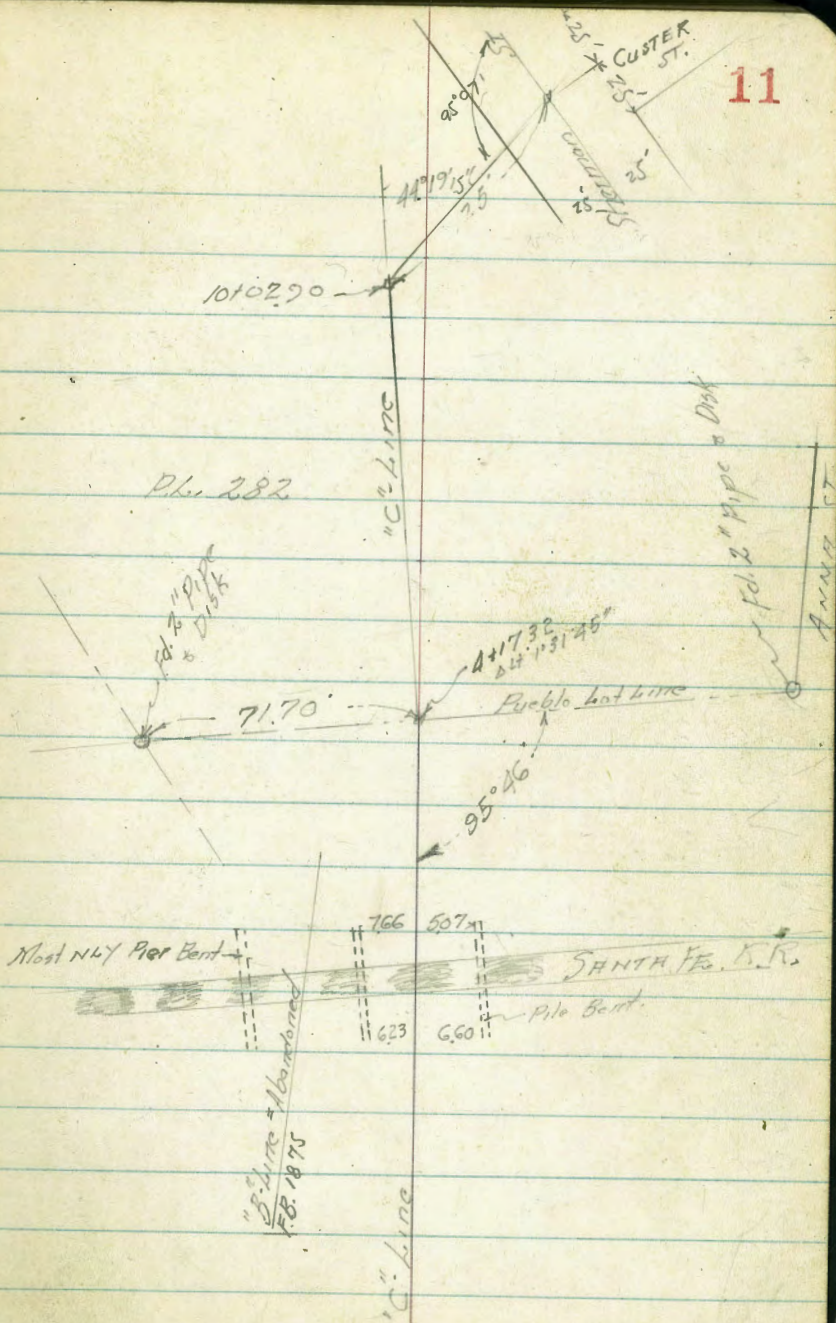 11
25'
CUSTER
ST.
25'
25'
25'
15'
95° 07'
Sherman
44°19'15"
25'
10+02.90
"C"-Line
P.L. 282
Fd. 2" Pipe & Disk
ANNA ST
Fd. 2" Pipe
& Disk
4+17.32
Δ Lt. 1°31'45"
71.70'
Pueblo Lot Line
95° 46'
7.66 5.07
Most NLY Pier Bent
SANTA FE. R.R.
6.23 6.60
Pile Bent.
"B"-Line = Abandoned
F.B. 1875
"C"-Line